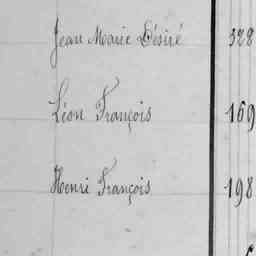 Jean Marie Désiré 328
Léon François 169
Henri François 198